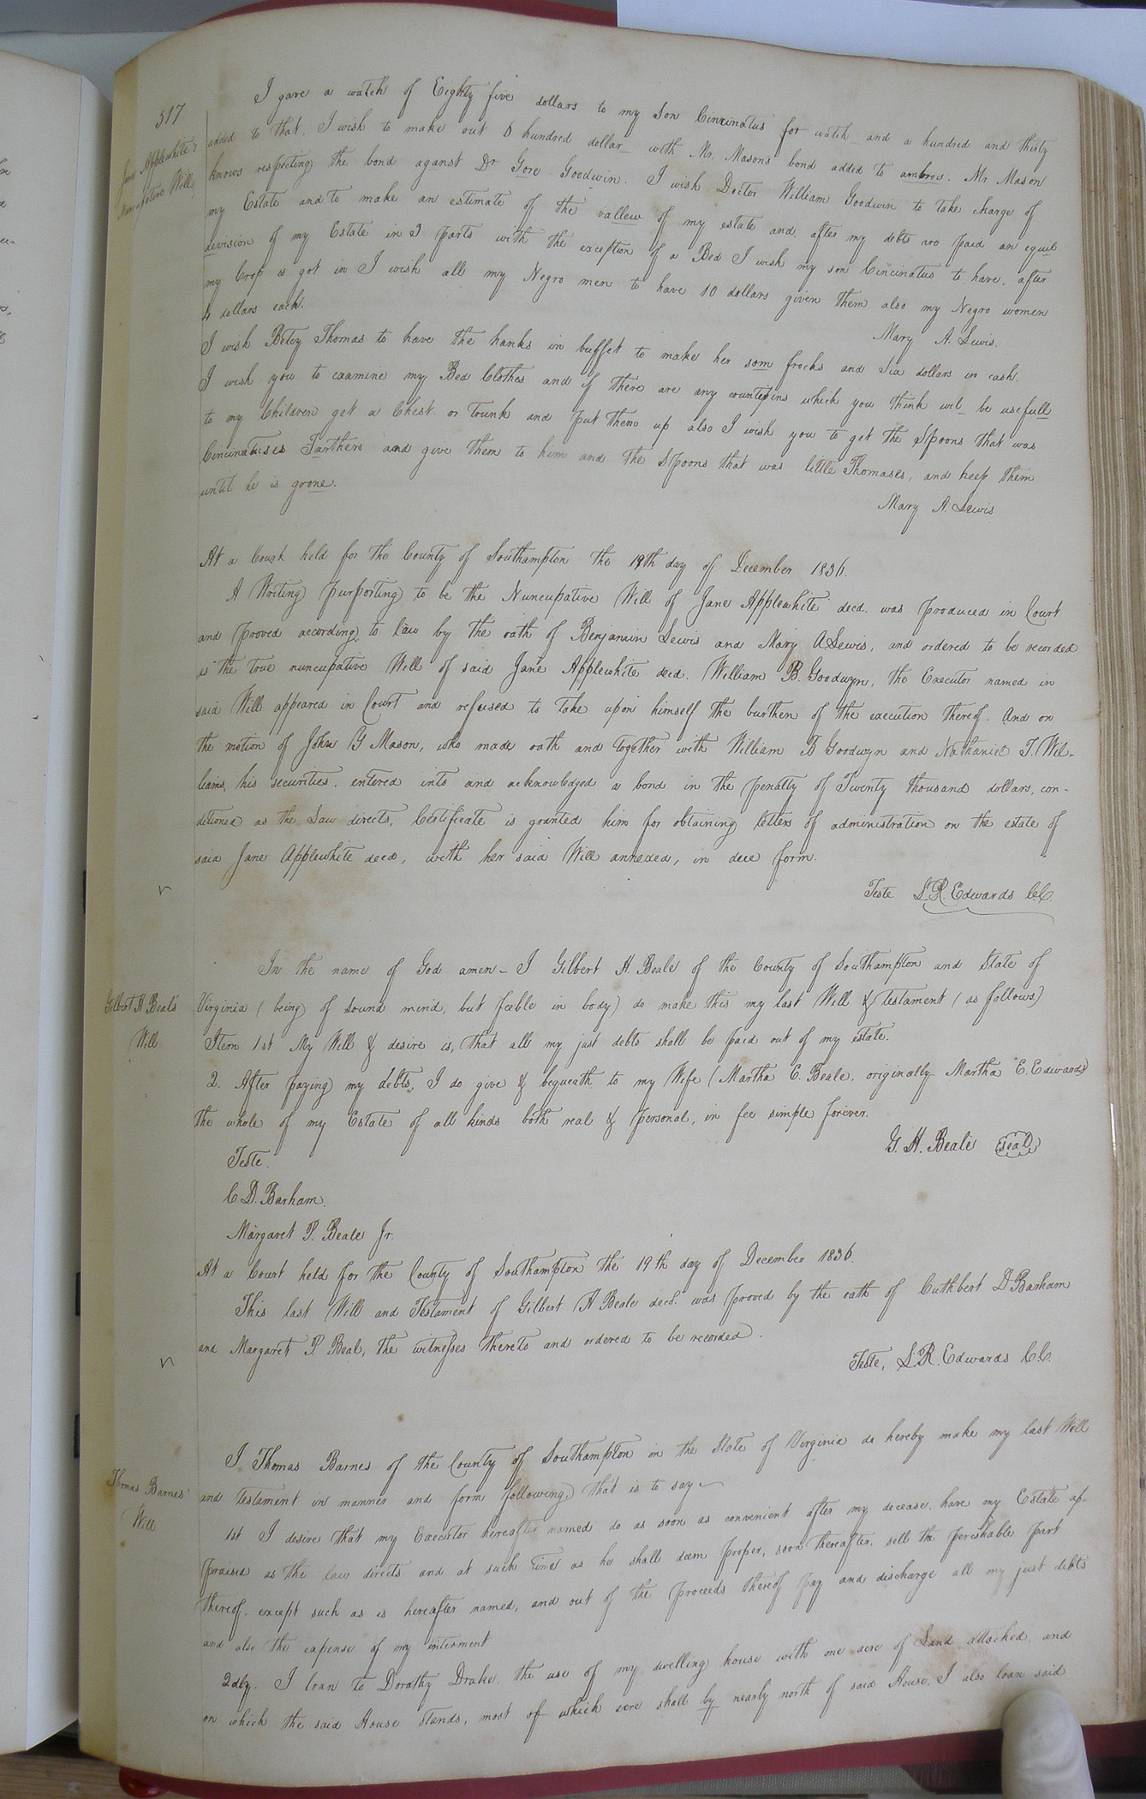 317
Jane Applewhite's
Nuncupative Will
I gave a watch of Eighty five dollars to my son Cincinatus for watch and a hundred and thirty
added to that. I wish to make out 8 hundred dollar with Mr. Masons bond added to ambros. Mr Mason
knows respecting the bond against Dr Gore Goodwin. I wish Doctor William Goodwin to take charge of
my Estate and to make an estimate of the vallew of my estate and after my debts are paid an equil
devision of my Estate in 3 parts with the exception of a Bed I wish my son Cincinatus to have, after
my Crop is got in I wish all my Negro men to have 10 dollars given them also my Negro women
dollars each.
Mary A. Lewis.
I wish Betsy Thomas to have the hanks in buffet to make her som frocks and Six dollars in cash.
I wish you to examine my Bed Clothes and if there are any countepins which you think wil be usefull
to my Children get a Chest or trunk and put them up also I wish you to get the Spoons that was
Cincinatuses Farthers and give them to him and the Spoons that was little Thomases, and keep them
until he is grone.
Mary A. Lewis
At a Court held for the County of Southampton the 19th day of December 1836.
A Writing purporting to be the Nuncupative Will of Jane Applewhite decd. was produced in Court
and proved according to law by the oath of Benjamin Lewis and Mary A Lewis, and ordered to be recorded
as the true nuncupative Will of said Jane Applewhite decd. William B. Goodwyn, the Executor named in
said Will appeared in Court and refused to take upon himself the burthen of the execution thereof. And on
the motion of John G Mason, who made oath and together with William B Goodwyn and Nathaniel T. Wil-
liams, his securities, entered into and acknowledged a bond in the penalty of Twenty thousand dollars, con-
ditioned as the Law directs, Certificate is granted him for obtaining letters of administration on the estate of
said Jane Applewhite decd, with her said Will annexed, in due form.
Teste L. R. Edwards C.C.
Gilbert H. Beale's
Will
In the name of God amen - I Gilbert H. Beale of the County of Southampton and State of
Virginia (being of sound mind, but feeble in body) do make this my last Will & Testament (as follows)
Item 1st My Will & desire is, that all my just debts shall be paid out of my estate.
2. After paying my debts, I do give & bequeath to my Wife (Martha E. Beale, originally Martha E. Edwards)
the whole of my Estate of all kinds both real & personal, in fee simple forever.
G. H. Beale Seal
Teste.
C D. Barham.
Margaret P. Beale Jr.
At a Court held for the County of Southampton the 19th day of December 1836.
This last Will and Testament of Gilbert H Beale decd. was proved by the oath of Cuthbert D Barham
and Margaret P. Beal, the witnesses thereto and ordered to be recorded.
Teste, L. R. Edwards C.C.
Thomas Barnes'
Will
I, Thomas Barnes of the County of Southampton in the State of Virginia do hereby make my last Will
and testament in manner and form following, that is to say
1st I desire that my Executor hereafter named do as soon as convenient after my decease, have my Estate ap-
praised as the law directs and at such time as he shall deem proper, soon thereafter, sell the perishable part
thereof, except such as is hereafter named, and out of the proceeds thereof pay and discharge all my just debts
and also the expense of my interment
2dly. I loan to Dorathy Drake, the use of my dwelling house with one acre of Land attached and
on which the said House stands, most of which acre shall by nearly north of said House. I also loan said